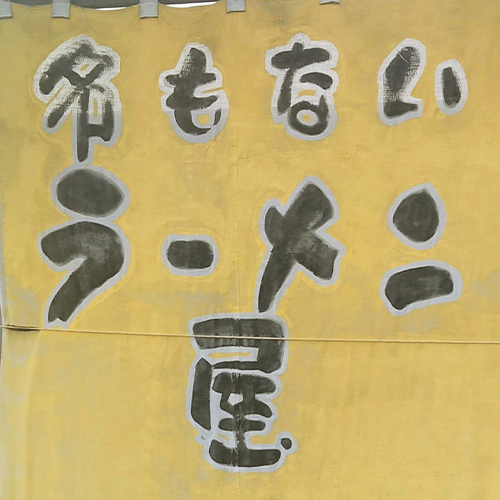 名もない
ラーメン
屋